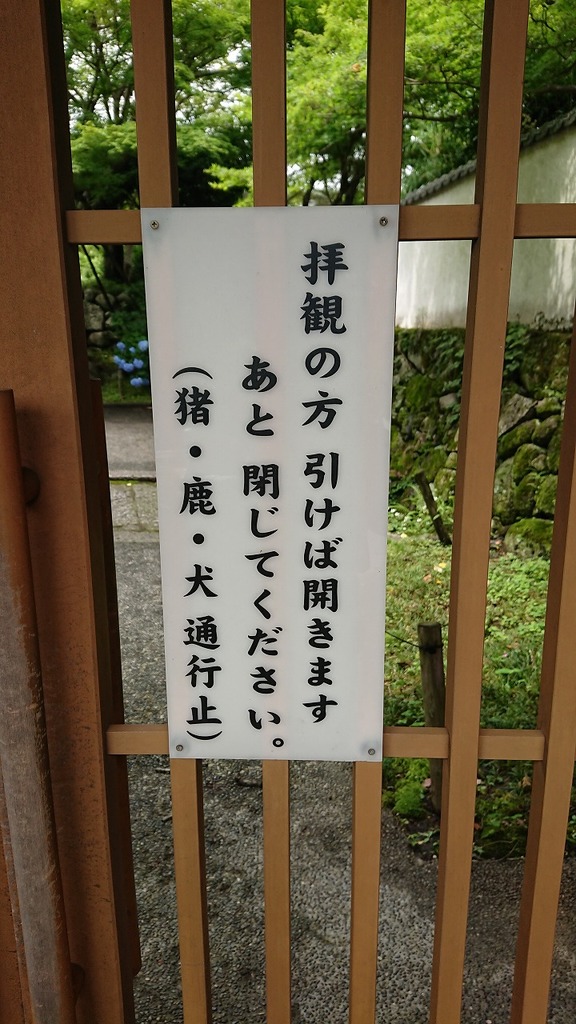 拝観の方 引けば開きます
あと 閉じてください。
（猪・鹿・犬 通行止）